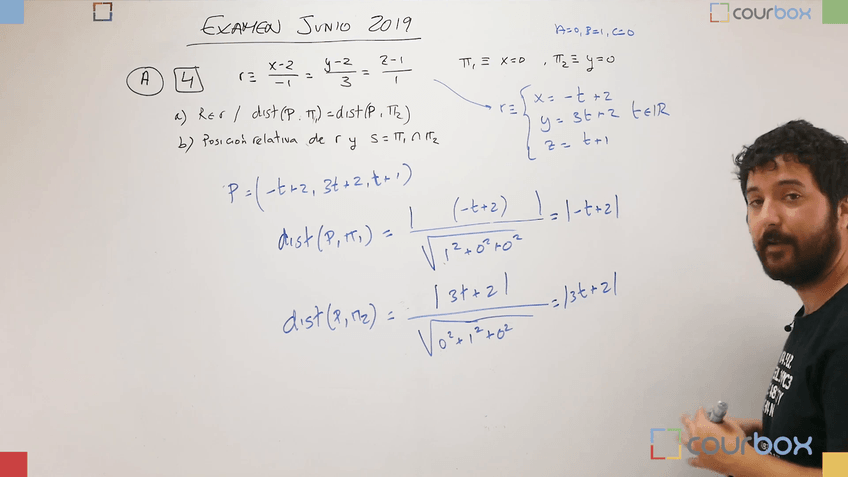 EXAMEN JUNIO 2019
courbox
A=0, B=1, C=0
A 4 r≡ x-2/-1 = y-2/3 = z-1/1 π₁ ≡ x=0 , π₂ ≡ y=0
a) R∈r / dist(P,π₁)=dist(P,π₂)
b) Posición relativa de r y s=π₁∩π₂
r≡ { x = -t+2
y = 3t+2 t∈ℝ
z = t+1
P=(-t+2, 3t+2, t+1)
dist(P,π₁) = | (-t+2) | / √1²+0²+0² = |-t+2|
dist(P,π₂) = |3t+2| / √0²+1²+0² = |3t+2|
courbox